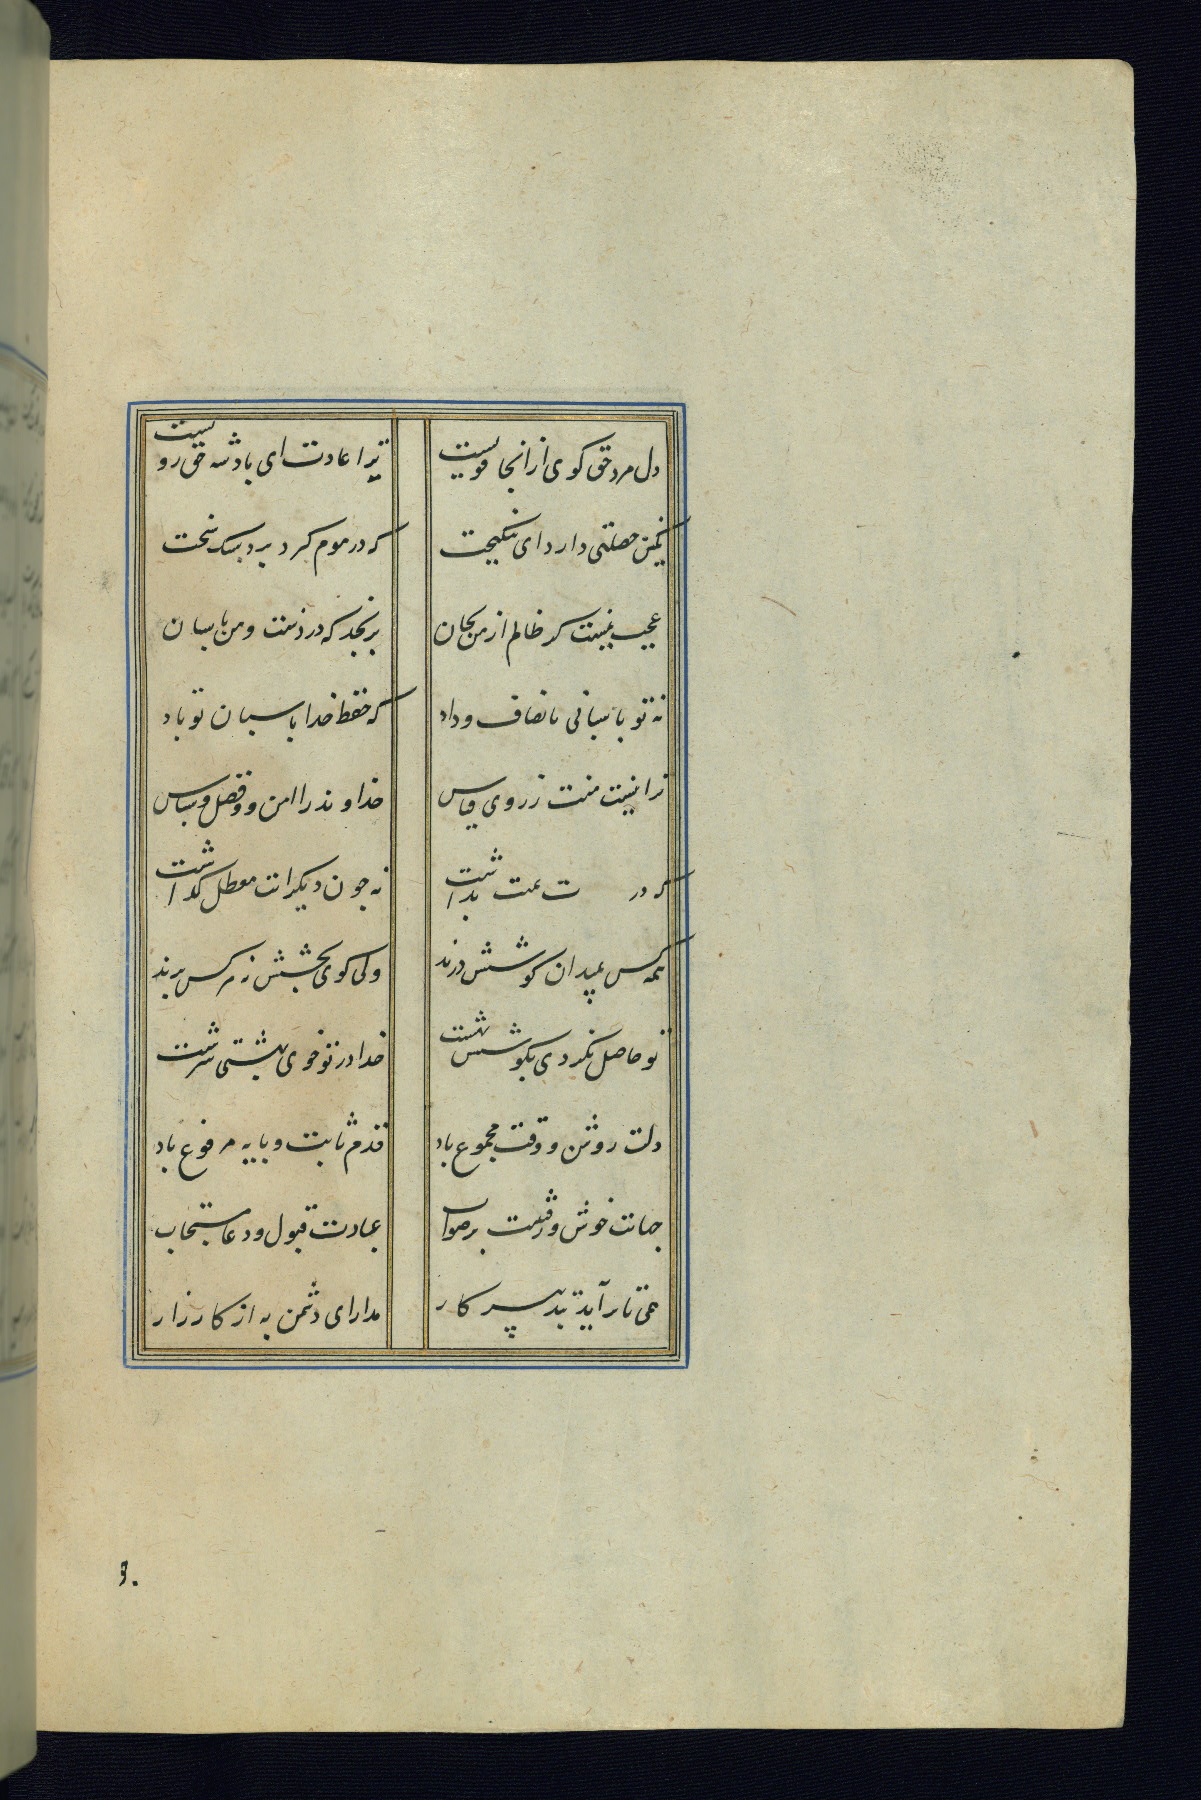 دل مرد حق کوی ازانجا قویست ترا عادت ای بادشه حق رویست
نکین خصلتی دارد ای نیکبخت که در موم کیرد نه در سنک سخت
عجب نیست کر ظالم از من بجان برنجد که دزدست و من پاسبان
نه تو پاسبانی بانصاف و داد که حفظ خدا پاسبان تو باد
ترا نیست منت ز روی قیاس خداوند را امن و فضل و سپاس
که در بداشت نه چون دیکرانت معطل کذاشت
همه کس بمیدان کوشش درند ولی کوی بخشش نه هر کس برند
تو حاصل نکردی بکوشش بهشت خدا در تو خوی بهشتی سرشت
دلت روشن و وقت مجموع باد قدم ثابت و پایه مرفوع باد
حیاتت خوش و رفتنت بر صواب عبادت قبول و دعا مستجاب
همی تا برآید بتدبیر کار مدارای دشمن به از کارزار